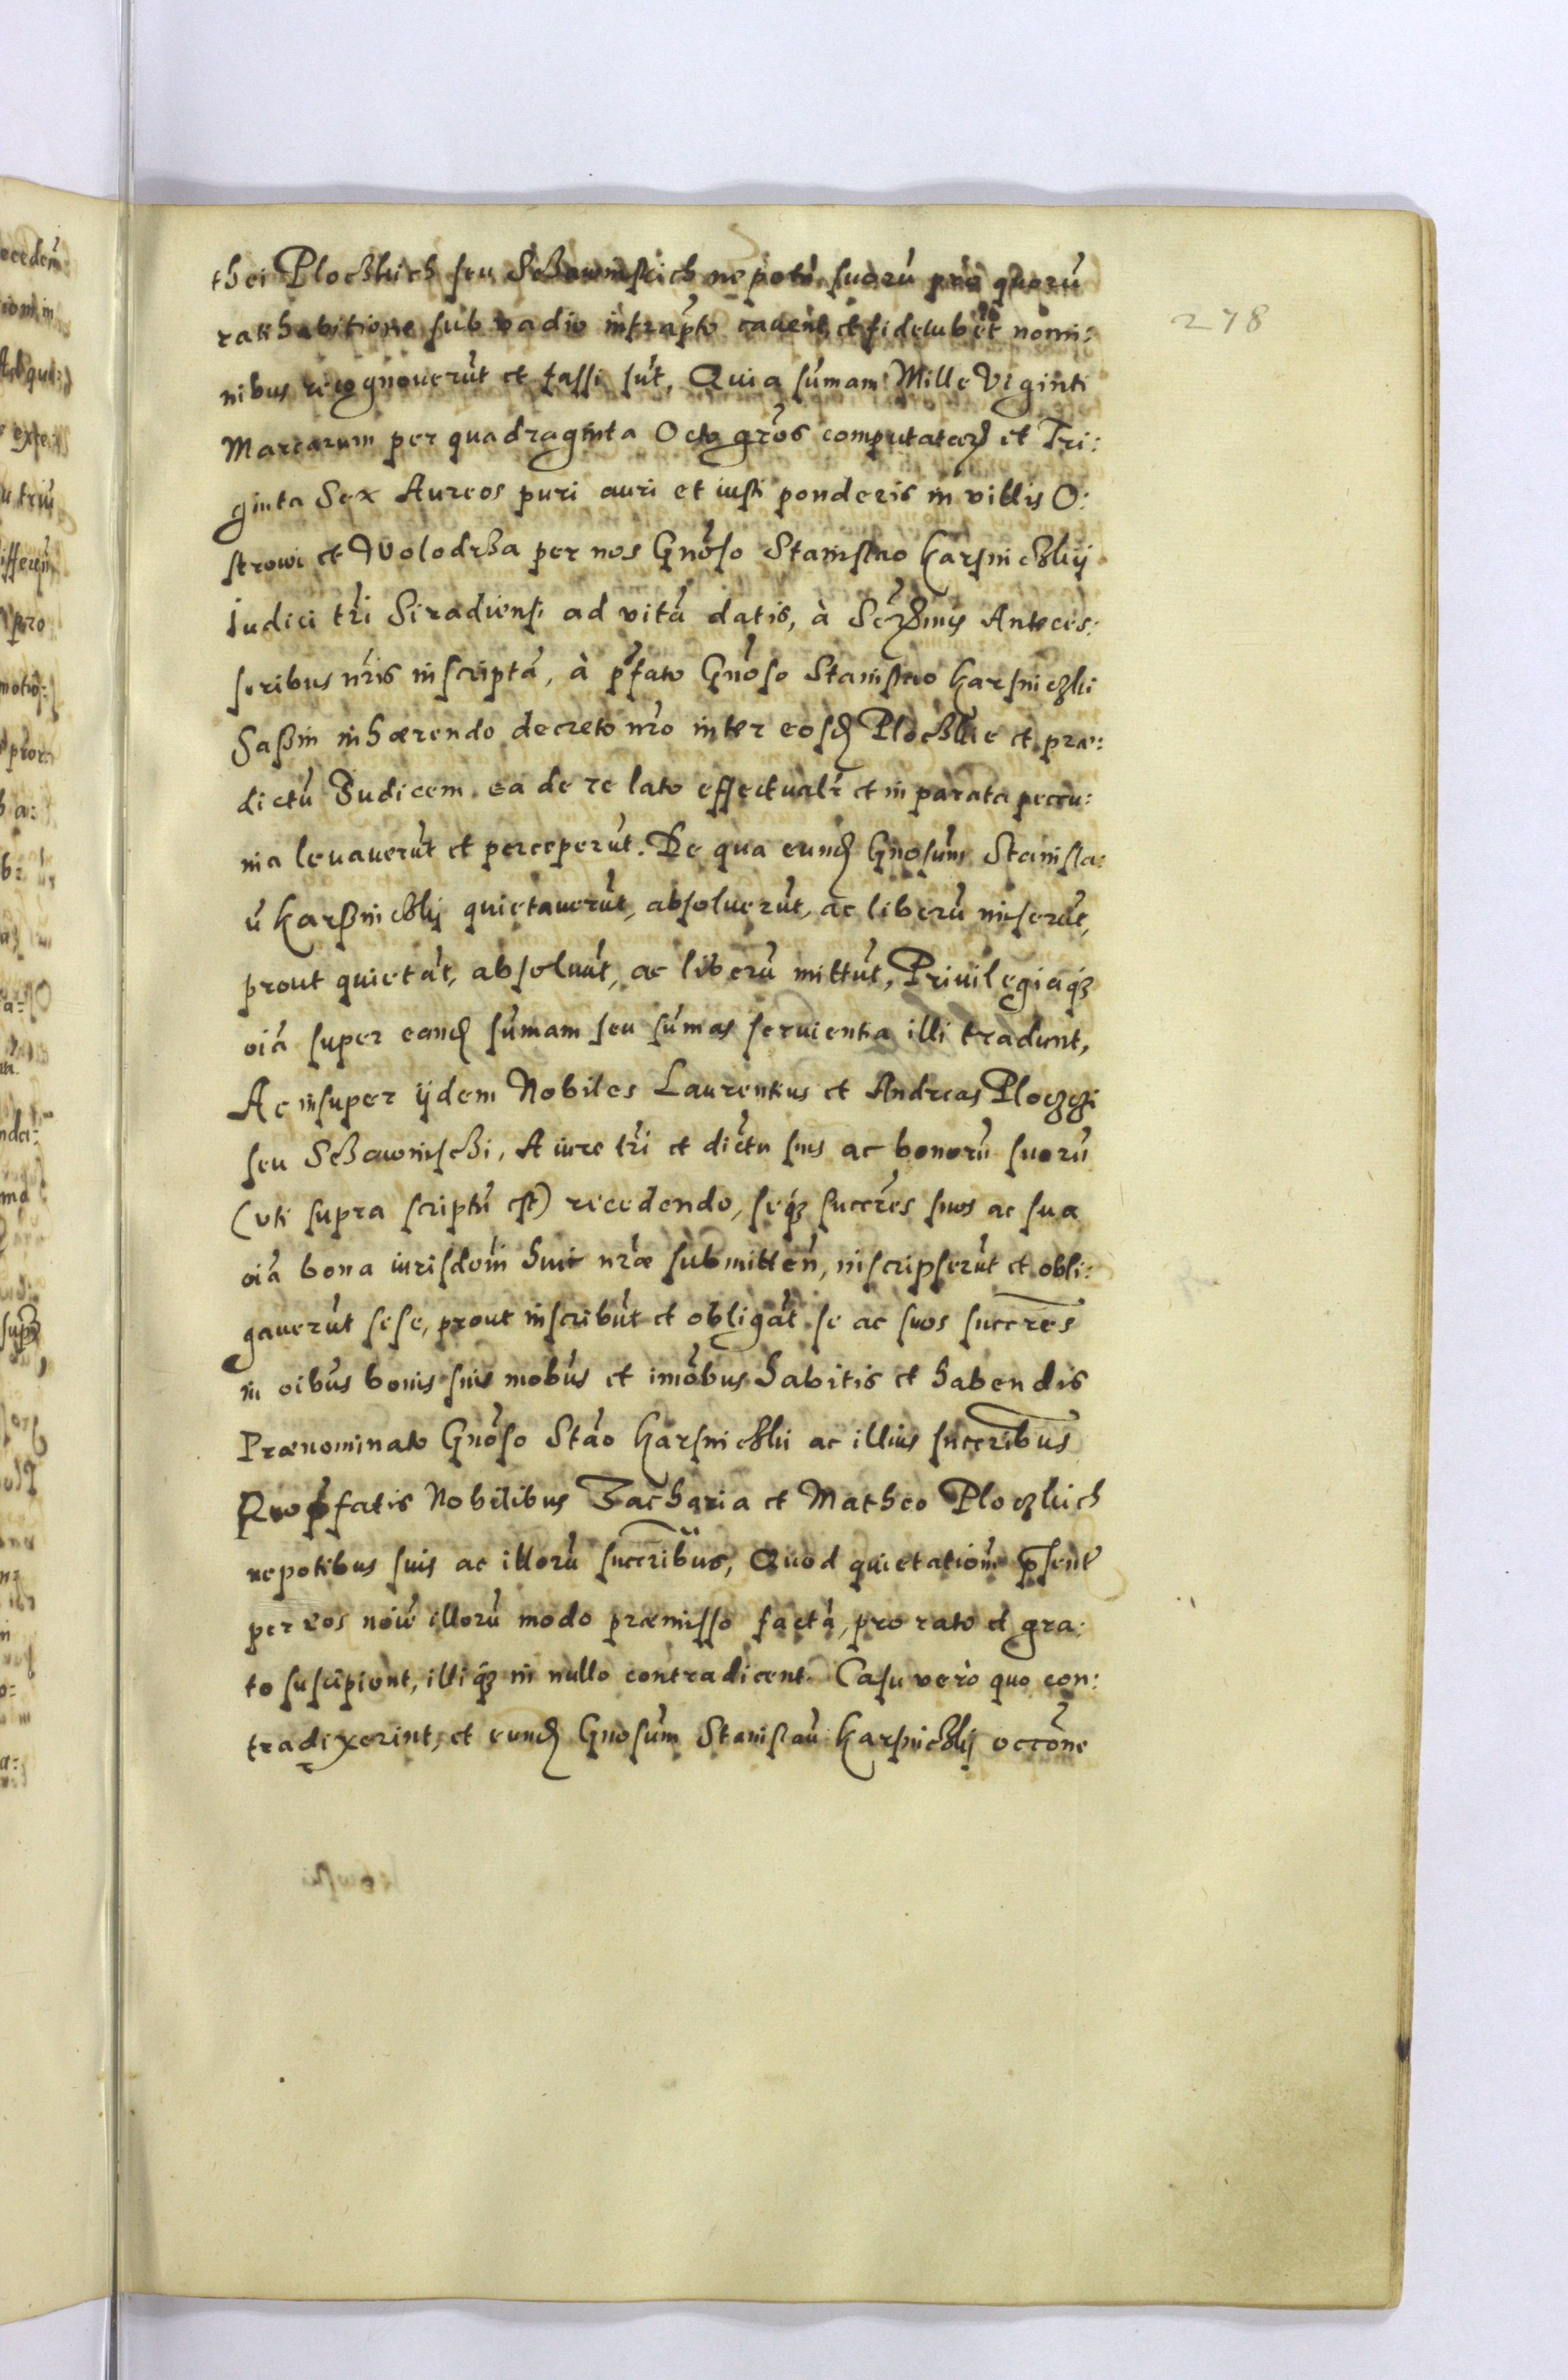 278
thei Ploczkich seu Sczawinskich nepotũ suorũ pro quorũ
ratihabitione sub vadio infrapto cauent et fideiubẽt nomi:
nibus recognouerũt et fassi sũt, Quia sũmam Mille Viginti
Marcarum per quadraginta Octo grõs computatarꝫ et Tri:
ginta Sex Aureos puri auri et iusti ponderis in villis O:
strowi et Wolodrza per nos Gnõso Stanislao Karsniczkij
Iudici trĩ Siradiensi ad vitã datis, à Serꝫmis Anteces:
soribus nris inscriptã, à pfato Gnõso Stanislao Karsniczki
Saßin inhærendo decreto nro inter eosdꝫ Ploczkie et præ:
dictũ Iudicem ea de re lato effectualr et in parata pecu:
nia leuauerũt et perceperũt. De qua eundꝫ Gnosum Stanisla:
ũ Karßniczkij quietauerũt, absoluerũt, ac liberũ miserũt,
prout quietãt, absoluũt, ac liberũ mittũt, Priuilegiaqꝫ
oĩa super eandꝫ sũmam seu sũmas seruientia illi tradunt,
Ac insuper ijdem Nobiles Laurentius et Andreas Ploczki
seu Sczawinski, A iure trĩ et dictu suis ac bonorũ suorũ
(vti supra scriptũ est) recedendo, seqꝫ succres suos ac sua
oĩa bona iurisdoĩni huic nræ submitteñ, inscripserũt et obli:
gauerũt sese, prout inscribũt et obligãt se ac suos succres
in oibus bonis suis mobus et imõbus habitis et habendis
Prænominato Gnõso Stão Karsniczki ac illius succribus
Pro pfatis Nobilibus Zacharia et Matheo Ploczkich
nepotibus suis ac illorũ succribus, Quod quietatiom psentẽ
per eos noie illorũ modo præmisso factã, pro rato et gra:
to suscipient, illiqꝫ in nullo contradicent. Casu verò quo con:
tradixerint, et eundꝫ Gnosum Stanislaũ Karsniczkij occõne